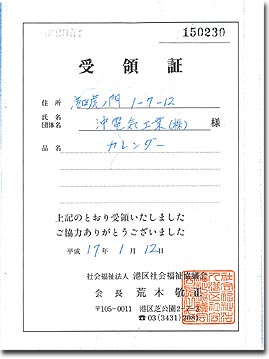 150230
受領証
住所 港区虎ノ門 1-7-12
氏名
団体名 沖電気工業(株) 様
品名 カレンダー
上記のとおり受領いたしました
ご協力ありがとうございました
平成 17年 1月 12日
社会福祉法人 港区社会福祉協議会
会長 荒木敬正
〒105-0011 港区芝公園2-7-3
☎03(3431)2081